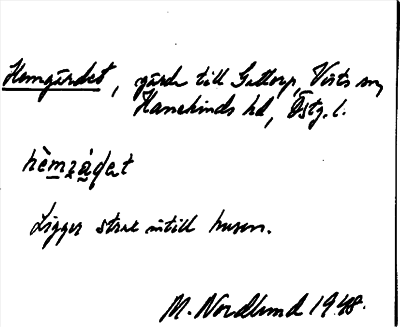 Hemgärdet, gärde till Gallorp, Vists sn,
Hanekinds hd, Östg. l.
hèmʒáḍət
Ligger strax intill husen.
M. Nordlund 1948.